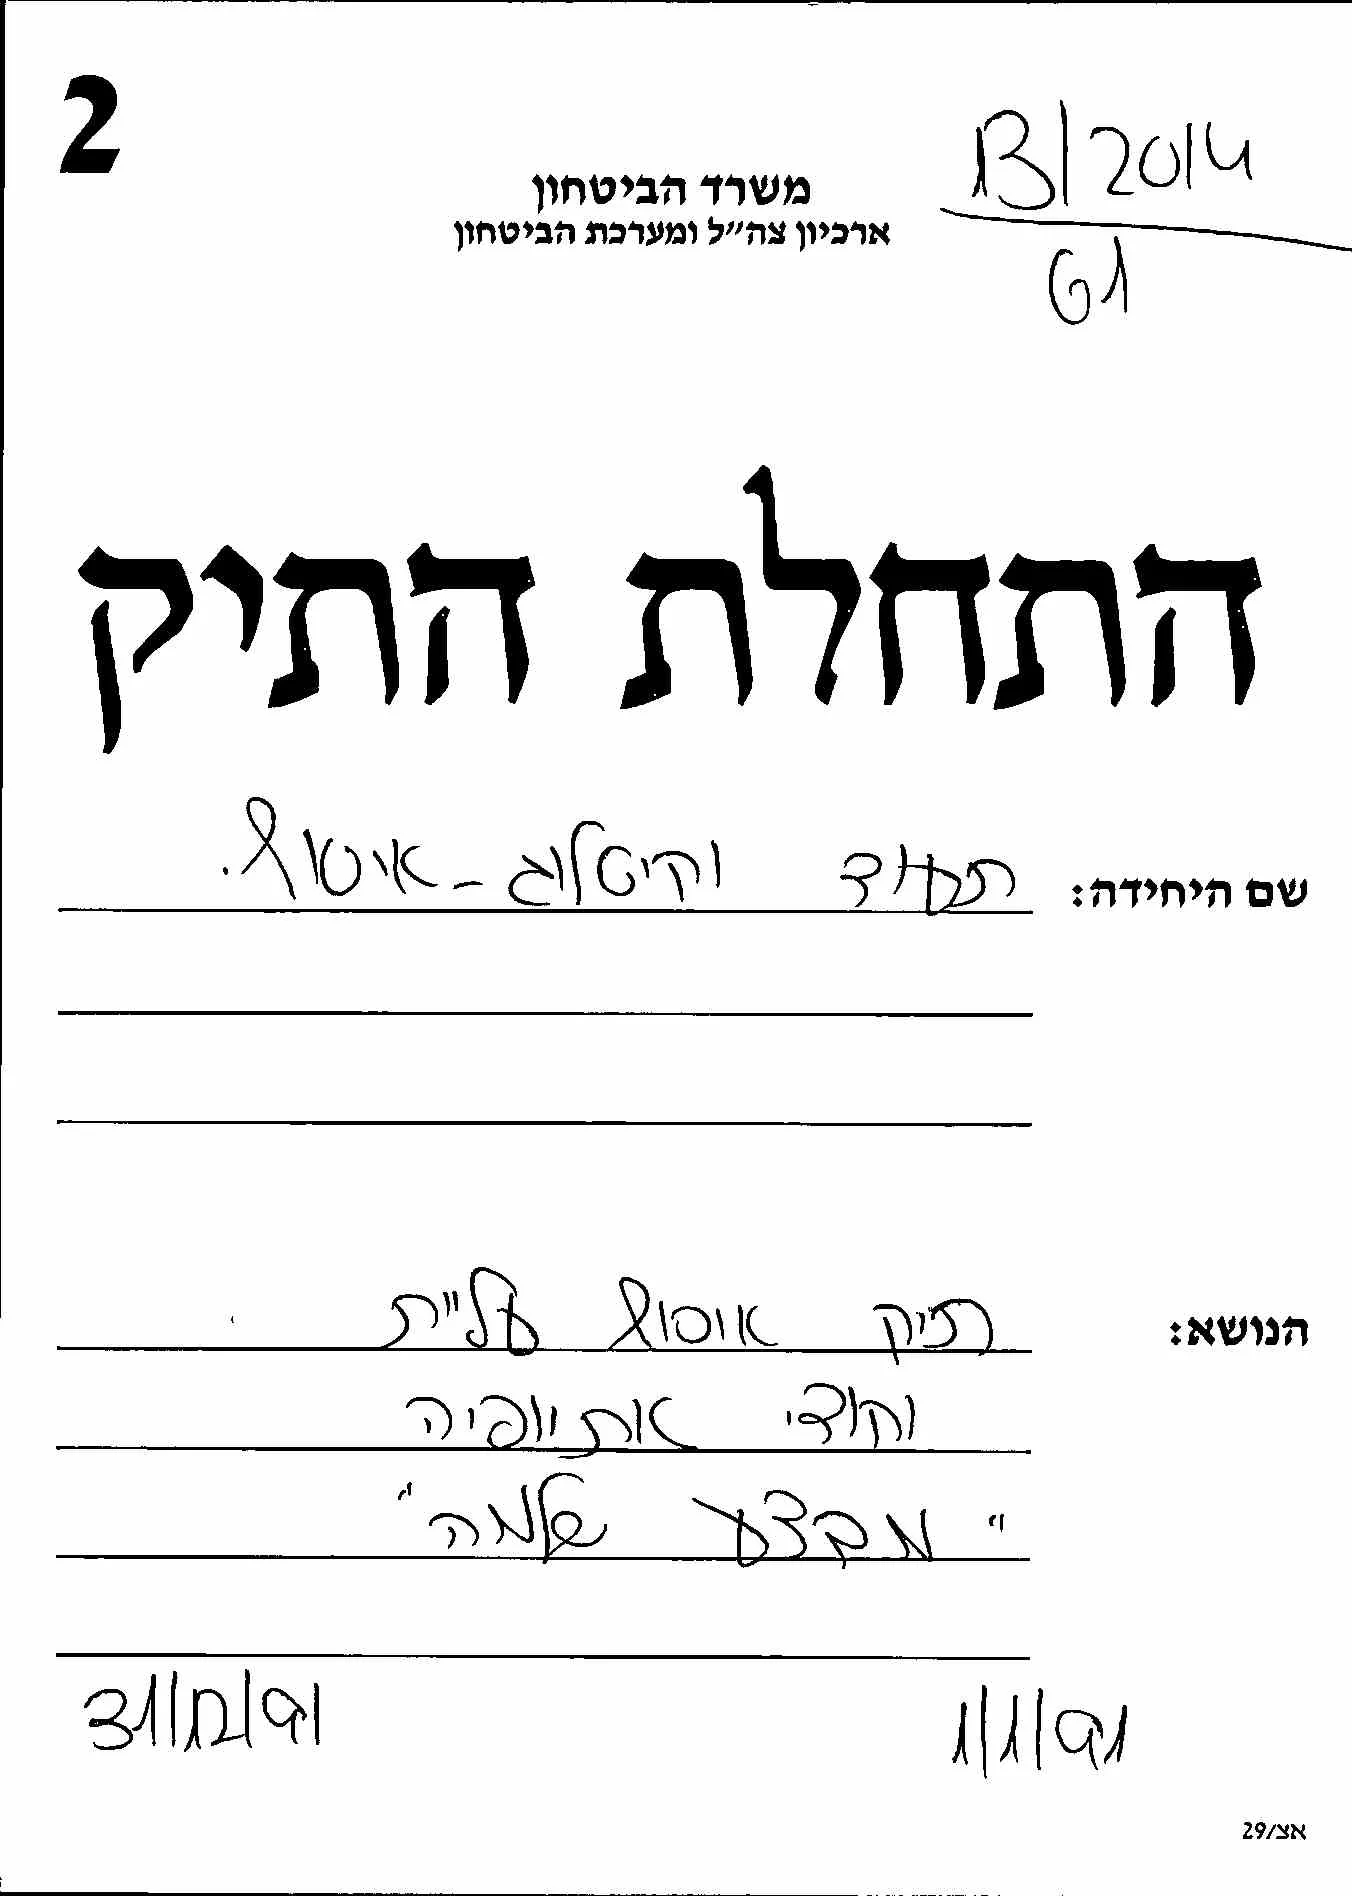 2
13/2014
61
משרד הביטחון
ארכיון צה״ל ומערכת הביטחון
התחלת התיק
שם היחידה: תעוד וקיטלוג - איסוף.
הנושא: תיק אוסף על״ית
וקודי אתיופיה
״מבצע שלמה״
1/1/91 31/12/91
אצ/29